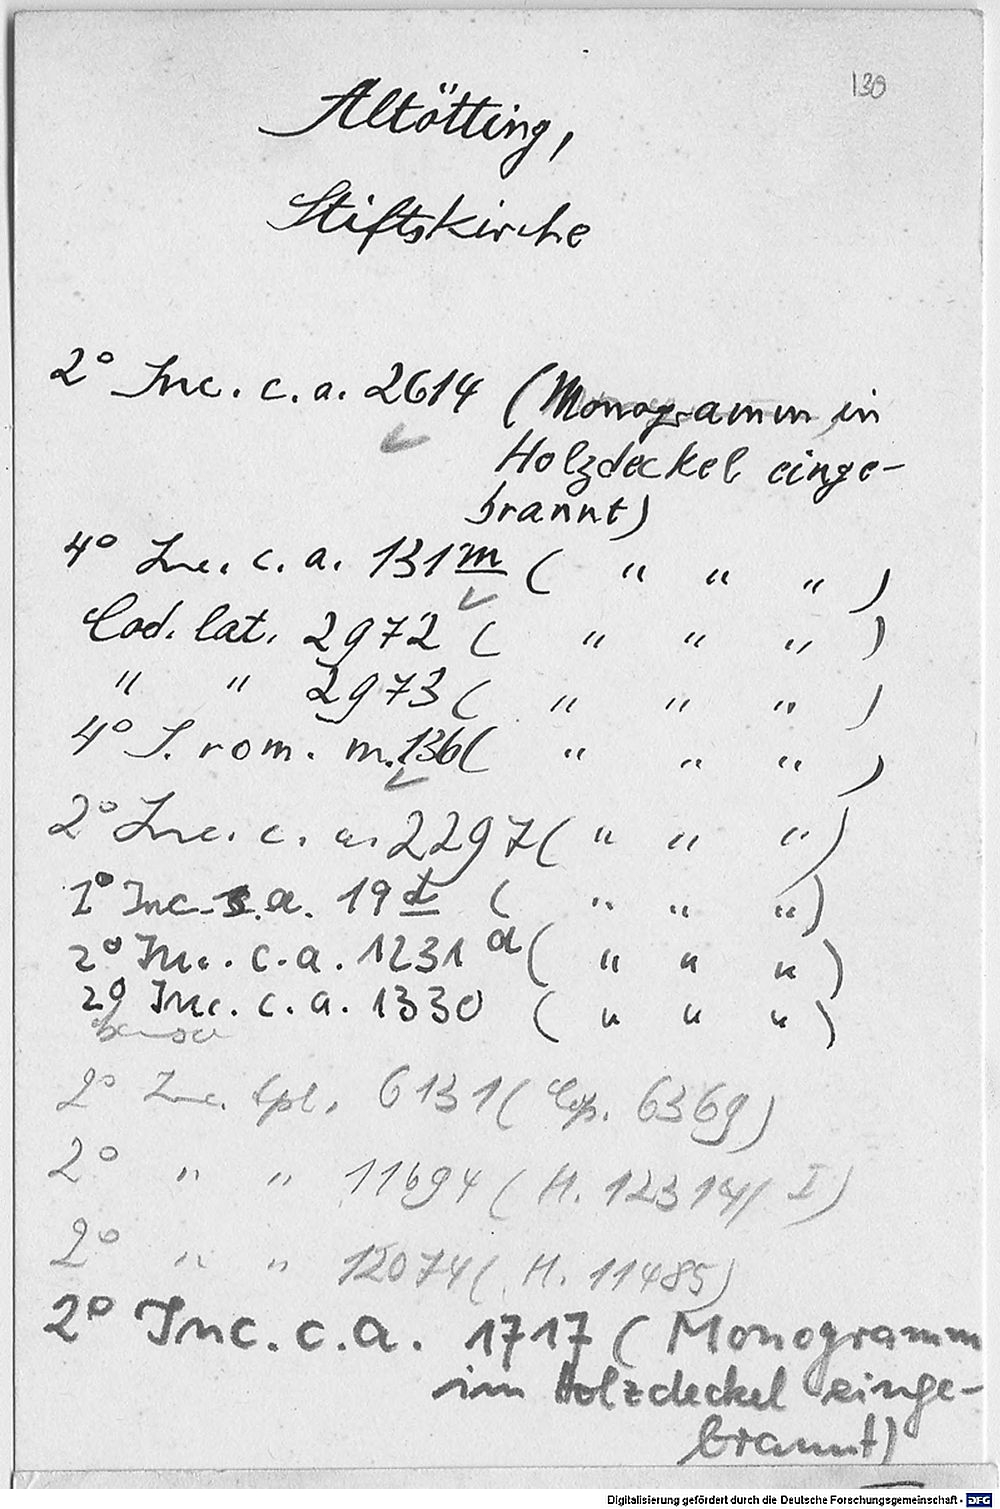 130
Altötting,
Stiftskirche
2° Inc. c. a. 2614 (Monogramm in
Holzdeckel einge-
brannt)
4° Inc. c. a. 131m ( " " " )
Cod. lat. 2972 ( " " " )
" " 2973 ( " " " )
4° J. rom. m. 136 ( " " " )
2° Inc. c. a. 2297 ( " " " )
1° Inc. s. a. 19 ( " " " )
2° Inc. c. a. 1231 d ( " " " )
2° Inc. c. a. 1330 ( " " " )
2° Inc. Cpl. 6131 ( Cop. 6369)
2° " " 11694 ( H. 12314/ I)
2° " " 12074 ( H. 11485)
2° Inc. c. a. 1717 ( Monogramm
im Holzdeckel einge-
brannt)
Digitalisierung gefördert durch die Deutsche Forschungsgemeinschaft - DFG